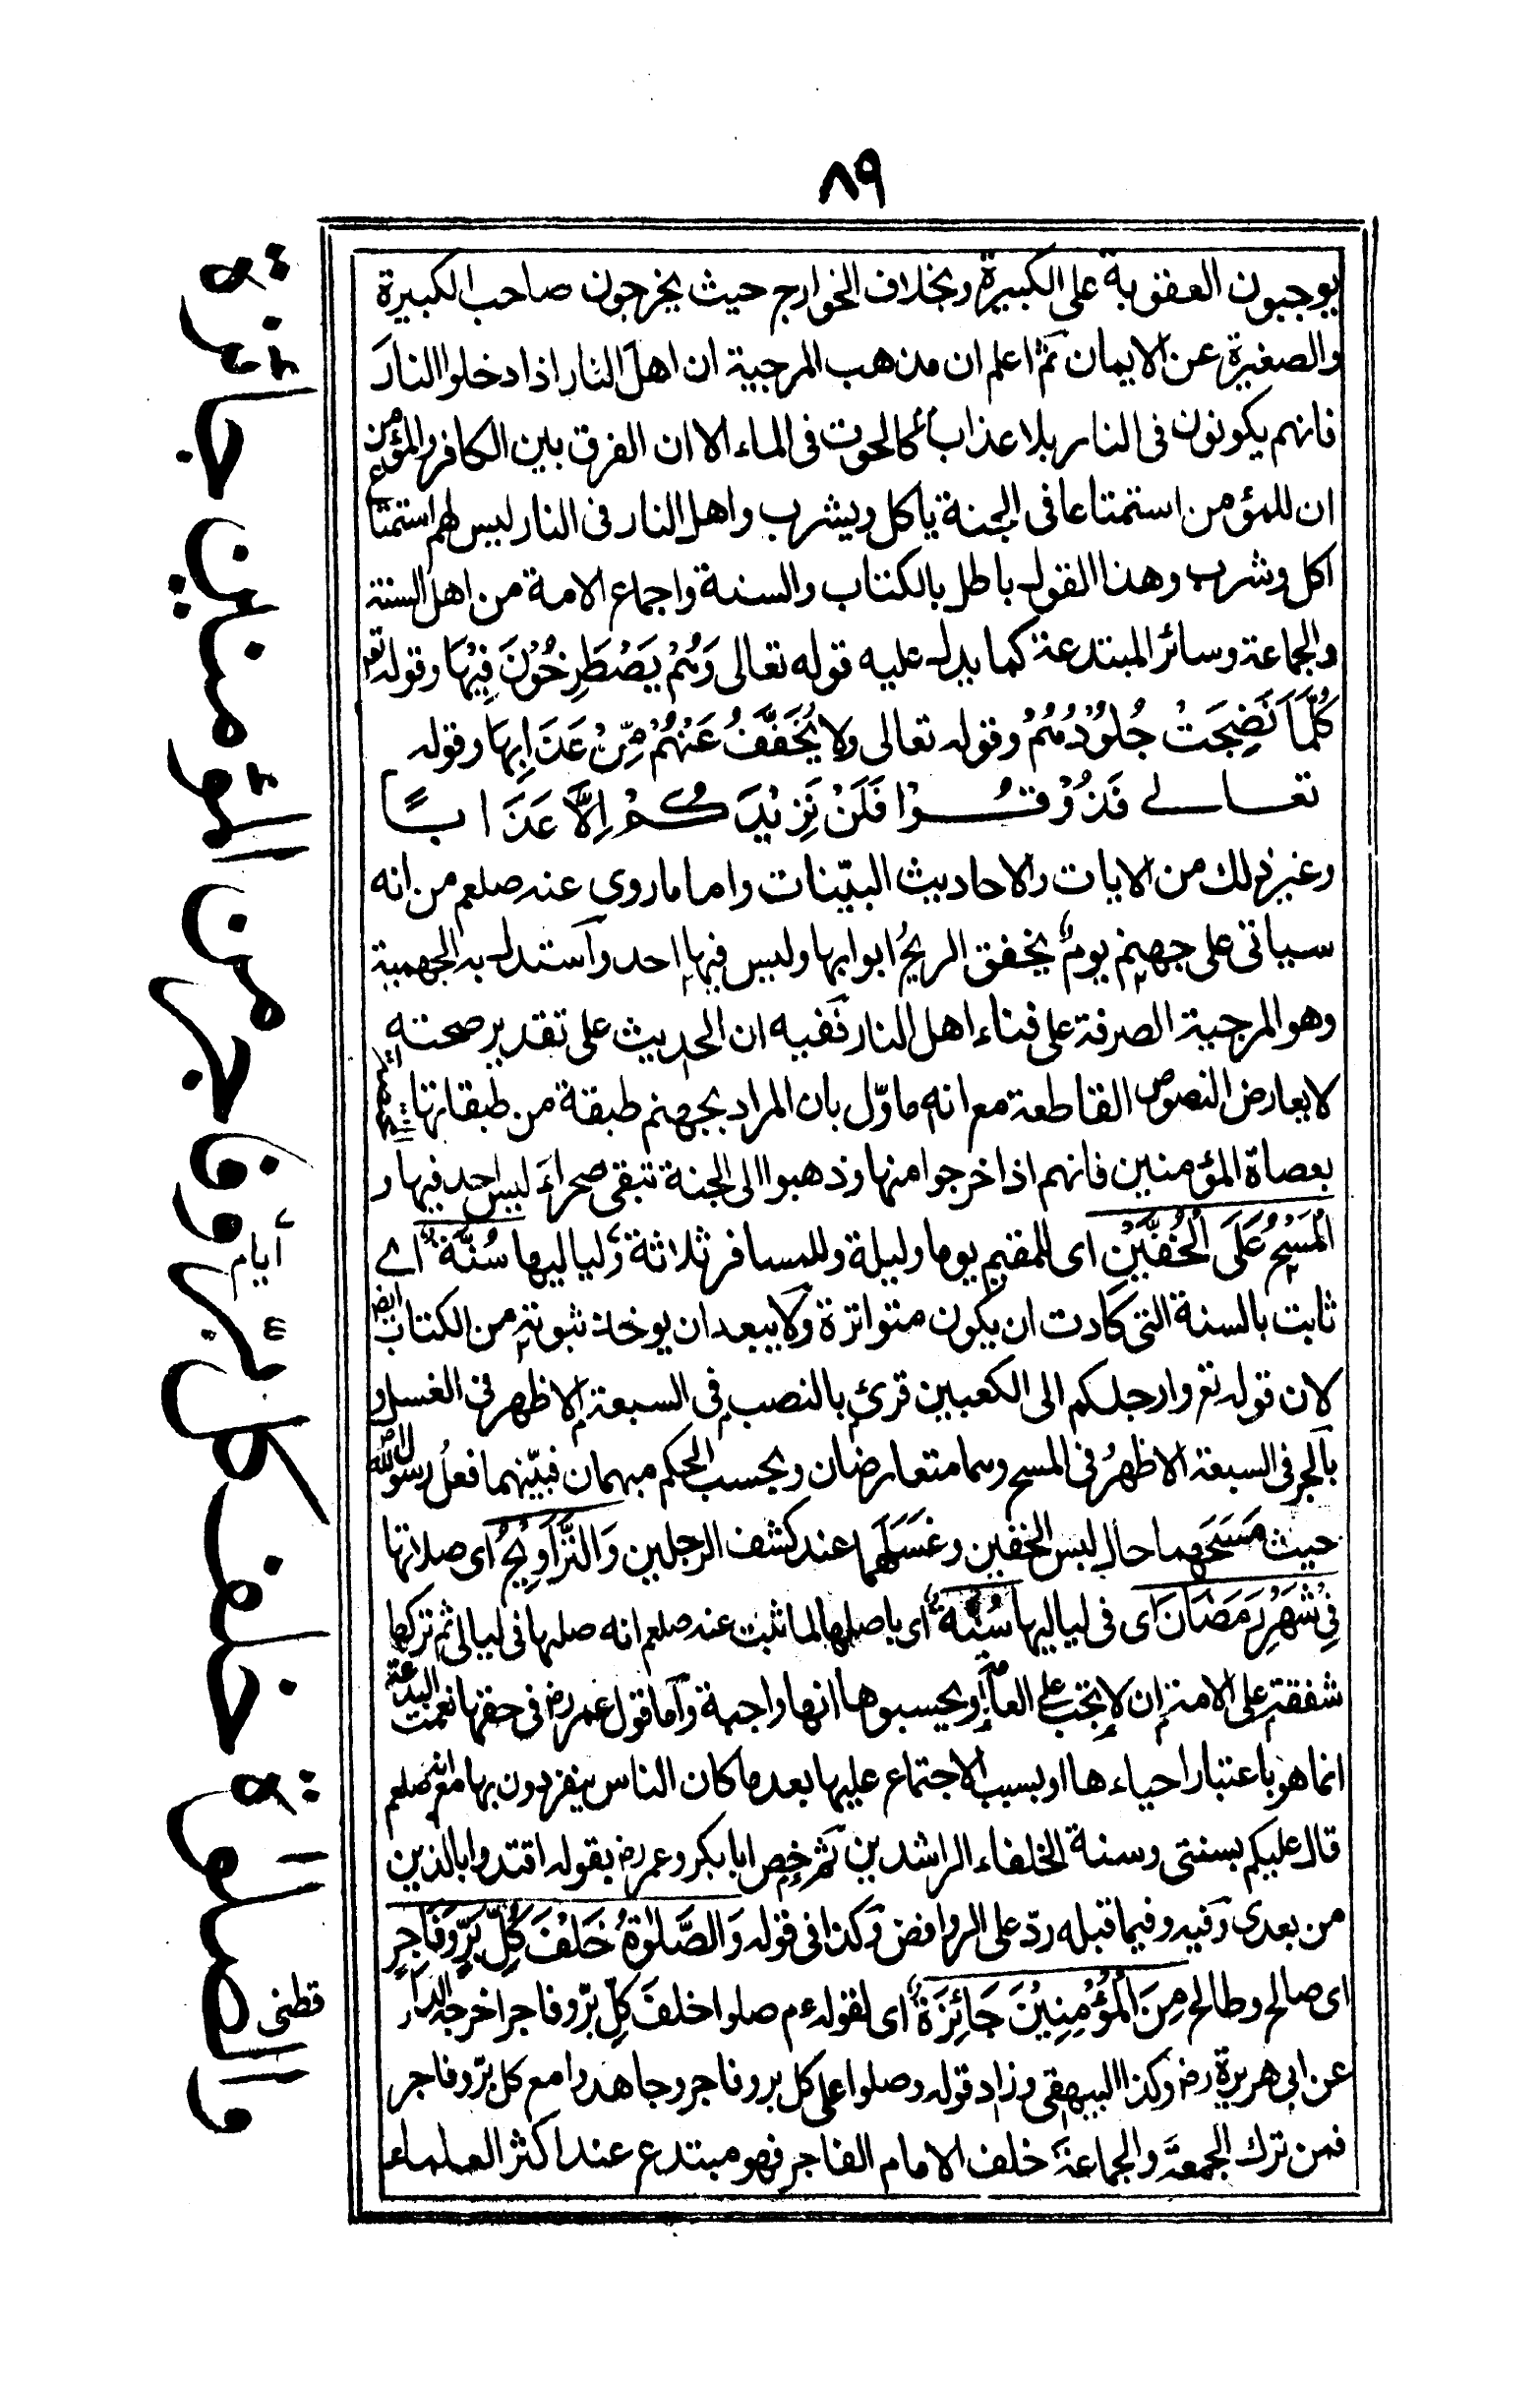 ٨٩
يوجبون العقوبة على الكبيرة وبخلاف الخوارج حيث يخرجون صاحب الكبيرة
والصغيرة عن الايمان ثم اعلم ان مذهب المرجية ان اهل النار اذا دخلوا النار
فانهم يكونون فى النار بلا عذاب كالحوت فى الماء الا ان الفرق بين الكافر والمؤمن
ان للمؤمن استمتاعا فى الجنة ياكل ويشرب واهل النار فى النار ليس لهم استمتاع
اكل وشرب وهذا القول باطل بالكتاب والسنة واجماع الامة من اهل السنة
والجماعة وسائر المبتدعة كما يدل عليه قوله تعالى وَهُمْ يَصْطَرِخُوْنَ فِيْهَا وقوله تع
كُلَّمَا نَضِجَتْ جُلُوْدُهُمْ وقوله تعالى ولا يُخَفَّفُ عَنْهُمْ مِّنْ عَذَابِهَا وقوله
تعالى فَذُوْقُوْا فَلَنْ نَزِيْدَكُمْ اِلَّا عَذَابًا
وغير ذلك من الايات والاحاديث البيّنات واما ما روى عنه صلعم من انه
سياتى على جهنم يوم يخفق الريح ابوابها وليس فيها احد واستدل به الجهمية
وهو المرجية الصرفة على فناء اهل النار ففيه ان الحديث على تقدير صحته
لا يعارض النصوص القاطعة مع انه ماوّل بان المراد بجهنم طبقة من طبقاتها
بعصاة المؤمنين فانهم اذا خرجوا منها وذهبوا الى الجنة تبقى صحراء ليس احد فيها و
الْمَسْحُ عَلَى الْخُفَّيْنِ اى للمقيم يوما وليلة وللمسافر ثلاثة أيام ولياليها سُنَّةٌ اے
ثابت بالسنة التى كادت ان يكون متواترة ولا يبعد ان يوخذ ثبوته من الكتاب ايض
لان قوله تع وارجلكم الى الكعبين قرئ بالنصب فى السبعة الاظهر فى الغسل و
بالجر فى السبعة الاظهر فى المسح وهما متعارضان وبحسب الحكم مبهمان فبيّنهما فعل رسول الله
حيث مَسَحَهما حال لبس الخفين وغَسَلَهما عند كشف الرجلين وَالتَّرَاوِيْحُ اى صلاتها
فِيْ شَهْرِ رَمَضَانَ اى فى لياليها سُنَّةٌ اى باصلها لما ثبت عنه صلعم انه صلها فى ليالى ثم تركها
شفقة على الامة ان لا تجب على العامة او يحسبوها انها واجبة واما قول عمر رض فى حقها نعمت البدعة
انما هو باعتبار احياءها او بسبب الاجتماع عليها بعد ما كان الناس ينفردون بها مع انه صلعم
قال عليكم بسنتى وسنة الخلفاء الراشدين ثم خص ابا بكر وعمر رض بقوله اقتدوا بالذين
من بعدى وفيه وفيما قبله ردّ على الروافض وكذا فى قوله وَالصَّلٰوةُ خَلْفَ كُلِّ بَرٍّ وَفَاجِرٍ
اى صالح وطالح مِنَ الْمُؤْمِنِيْنَ جَائِزَةٌ اى لقوله ءم صلوا خلف كل برّ وفاجر اخرجه الدار قطنى
عن ابى هريرة رض وكذا البيهقى وزاد قوله وصلوا على كل بر وفاجر وجاهدوا مع كل برّ وفاجر
فمن ترك الجمعة والجماعة خلف الامام الفاجر فهو مبتدع عند اكثر العلماء
والصلوٰة خلف كل برّ وفاجر من المؤمنين جائزة